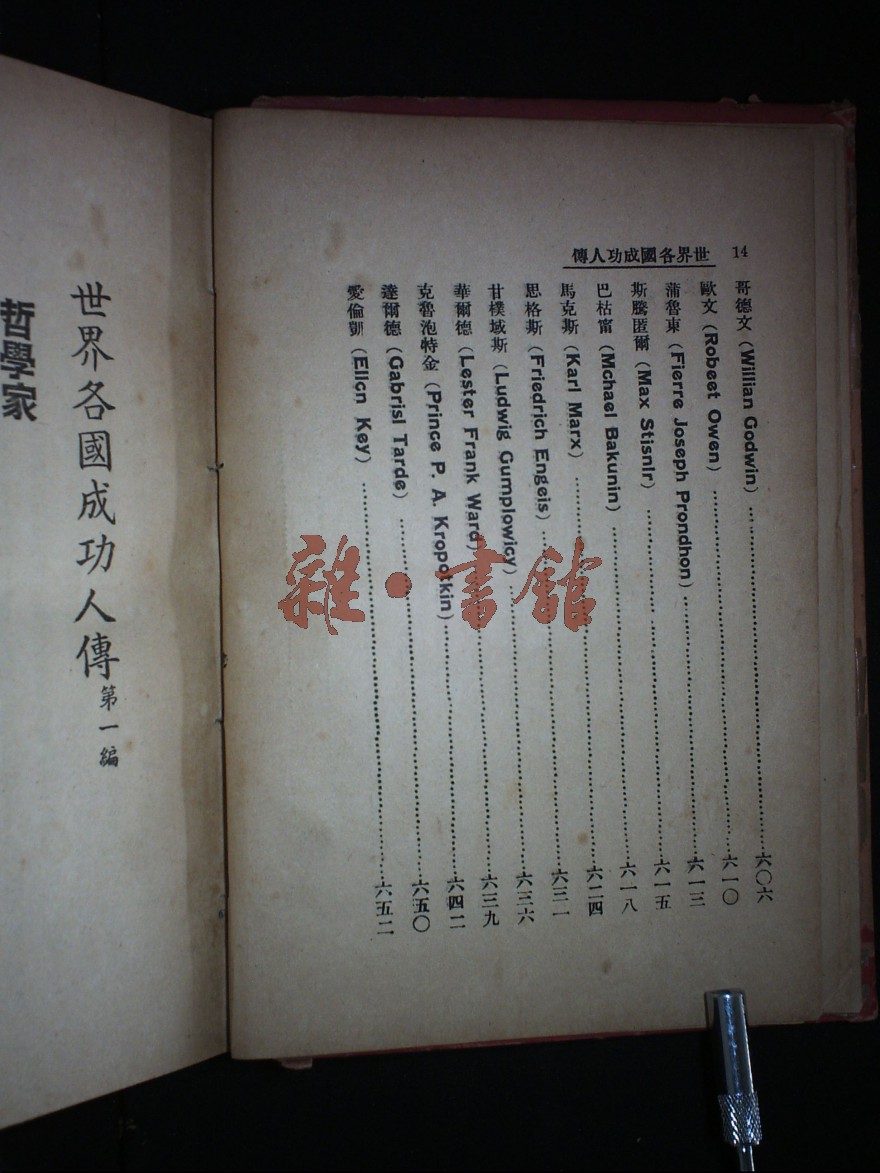 14 世界各國成功人傳
哥德文 (Willian Godwin) ……六〇六
歐文 (Robeet Owen) ……六一〇
蒲魯東 (Fierre Joseph Prondhon) ……六一三
斯騰匿爾 (Max Stisnlr) ……六一五
巴枯甯 (Mchael Bakunin) ……六一八
馬克斯 (Karl Marx) ……六二四
思格斯 (Friedrich Engeis) ……六三一
甘樸域斯 (Ludwig Gumplowicy) ……六三六
華爾德 (Lester Frank Ward) ……六三九
克魯泡特金 (Prince P. A. Kropotkin) ……六四二
達爾德 (Gabrisl Tarde) ……六五〇
愛倫凱 (Ellcn Key) ……六五二
世界各國成功人傳 第一編
哲學家
雜·書館